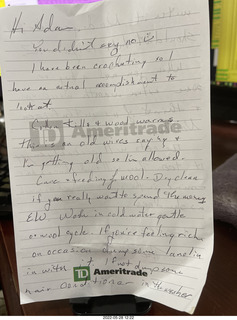 Hi Adam,
You didn't say no
I have been crocheting so I
have an actual accomplishment to
look at.
& wood warms
TD Ameritrade
This is an old wives say &
I'm getting old so I'm allowed.
Care + feeding of wool - Dry clean
if you really want to spend the money
EW. Wash in cold water gentle
or wool cycle. If you're feeling rich
on occasion dump some lanolin
in with it
TD Ameritrade
dump some
hair conditioner in the
2022-05-28 12:22